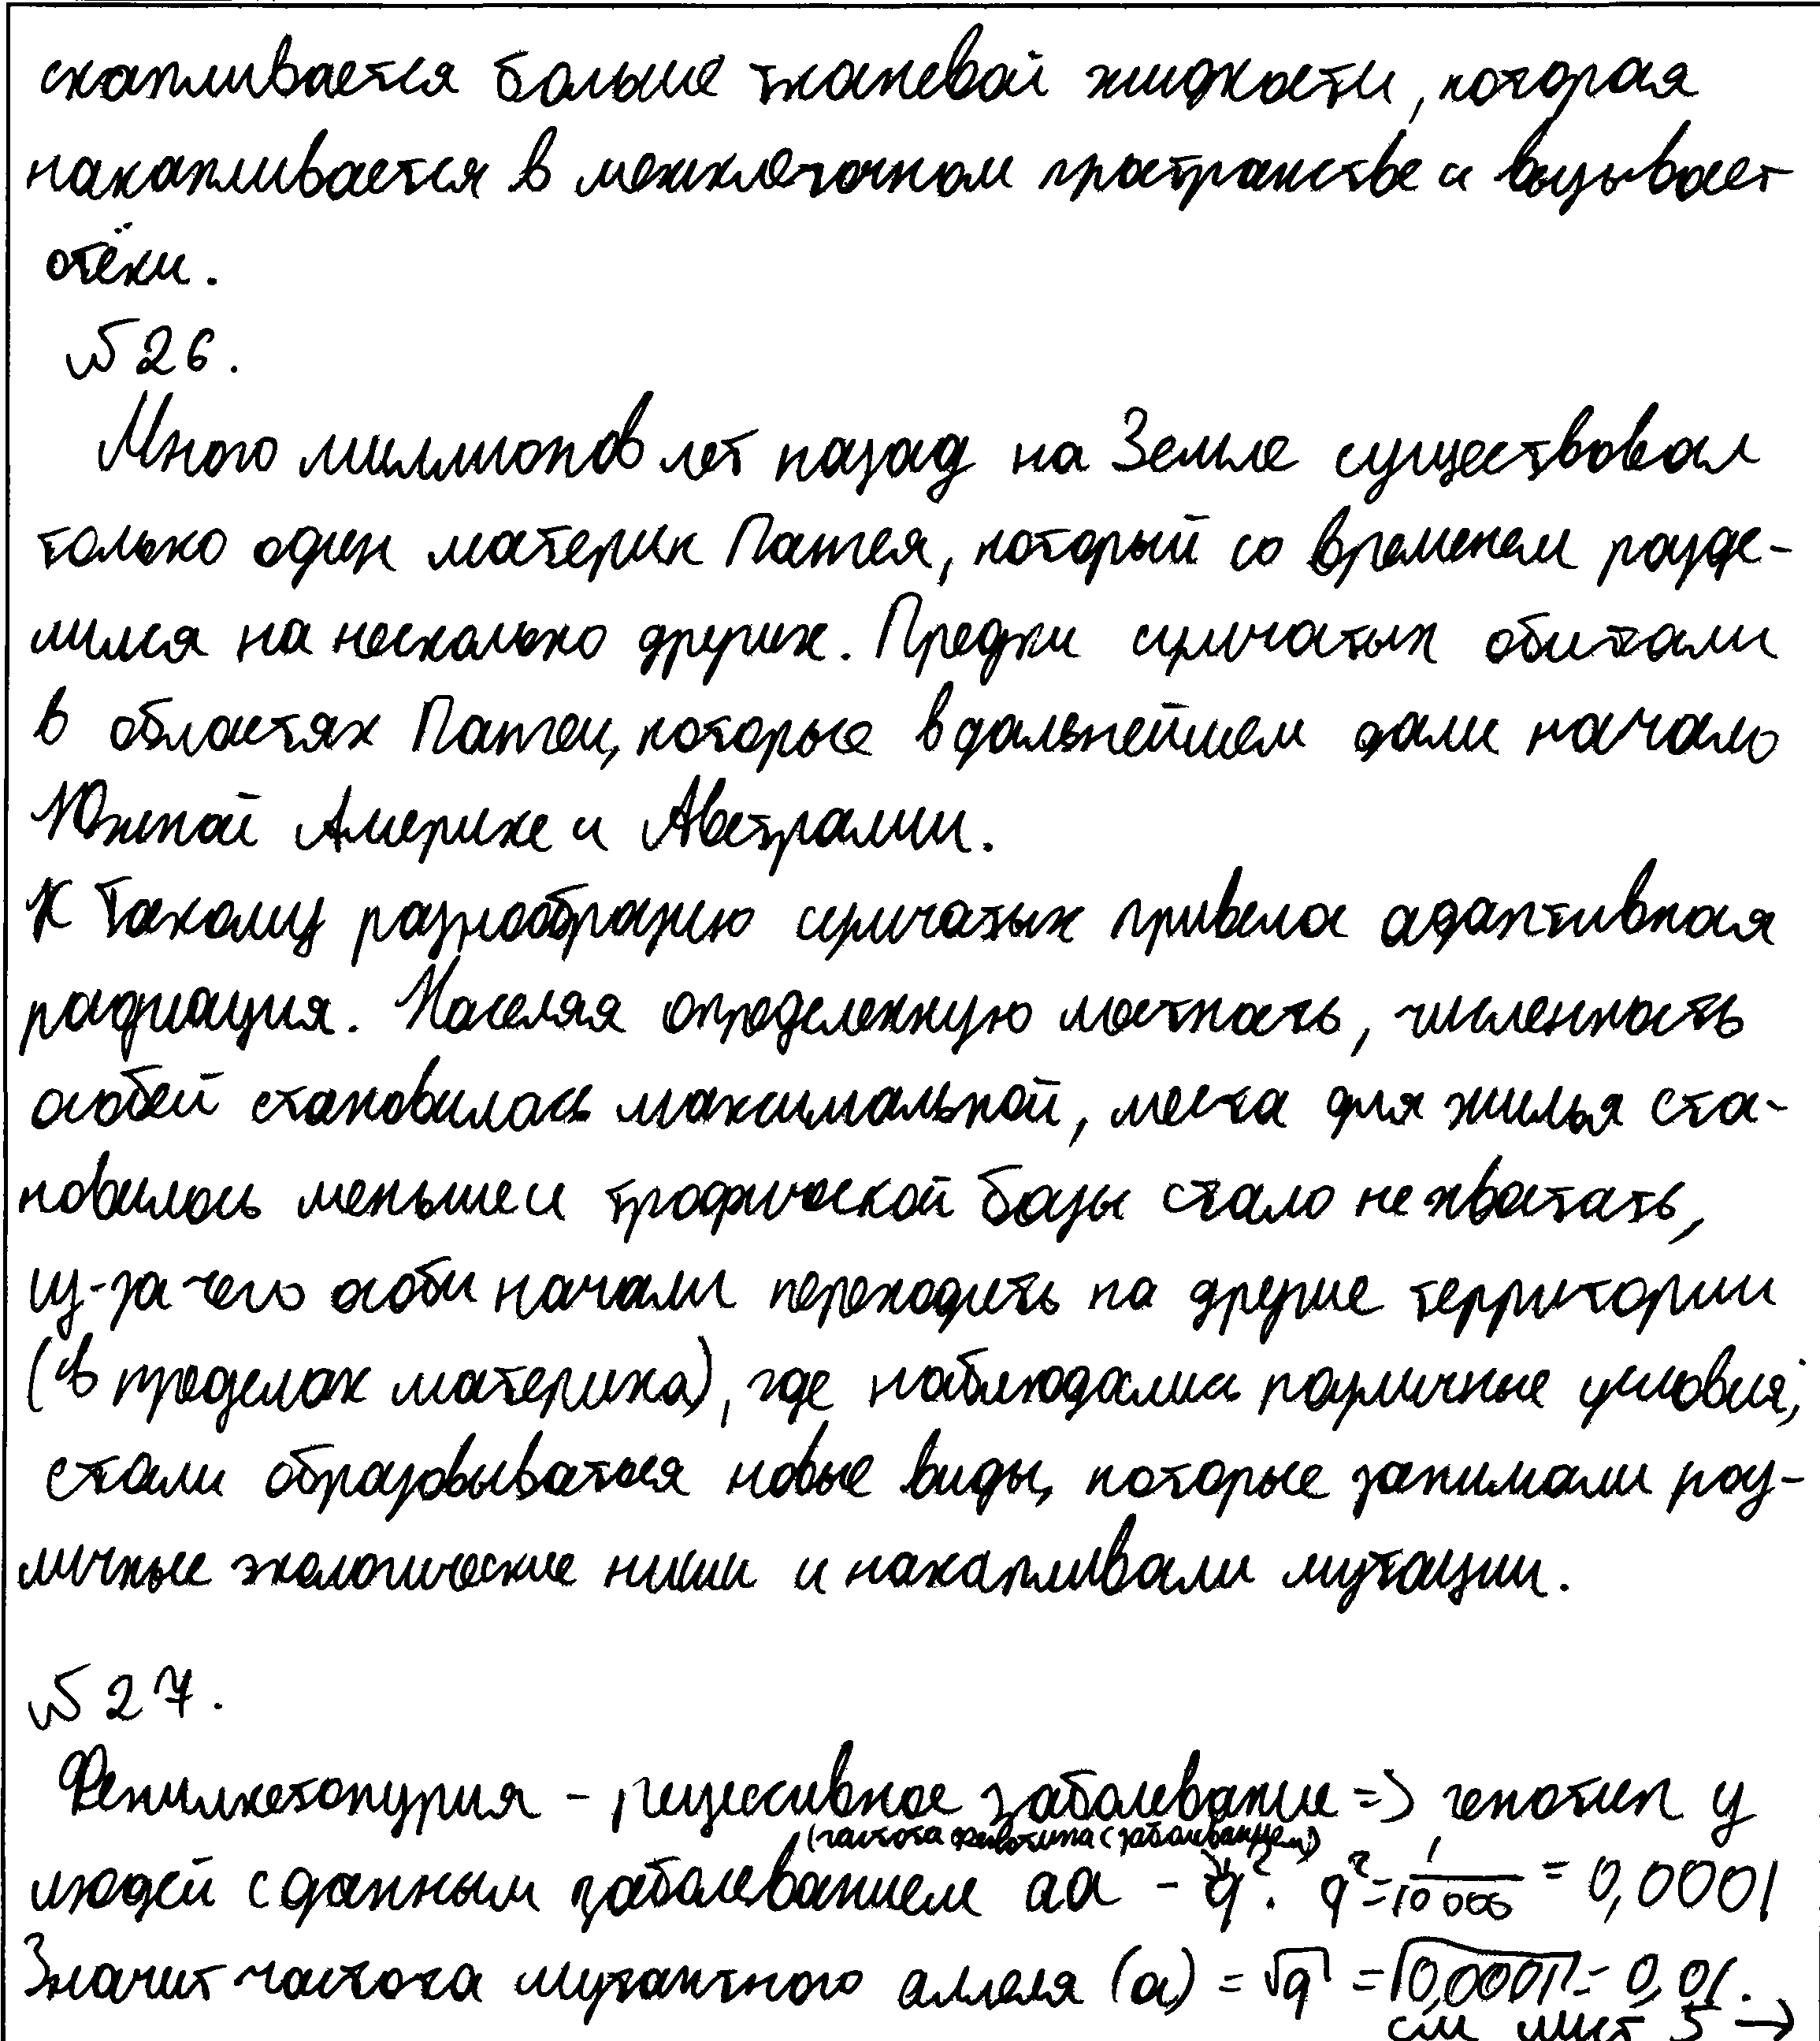 скапливается больше тканевой жидкости, которая
накапливается в межклеточном пространстве и вызывает
отёки.
№26.
Много миллионов лет назад на Земле существовал
только один материк Пангея, который со временем разде-
лился на несколько других. Предки сумчатых обитали
в областях Пангеи, которые в дальнейшем дали начало
Южной Америке и Австралии.
К такому разнообразию сумчатых привела адаптивная
радиация. Населяя определенную местность, численность
особей становилась максимальной, места для жилья ста-
новилось меньше и трофической базы стало не хватать,
из-за чего особи начали переходить на другие территории
(в пределах материка), где наблюдались различные условия,
стали образовываться новые виды, которые занимали раз-
личные экологические ниши и накапливали мутации.
№27.
Фенилкетонурия - рецессивное заболевание => генотип у
(частота фенотипа с заболеванием)
людей с данным заболеванием аа - q². q²=1/10 000 = 0,0001
Значит частота мутантного аллеля (а) = √q = √0,0001 = 0,01.
см лист 5 →